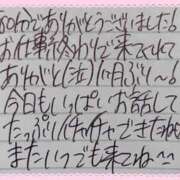 60分でありがとうございました!
お仕事終わりで来てくれて
ありがと(泣) 1ヶ月ぶり〜!
今日もいっぱいお話して
たっぷりイチャイチャできたね
またいつでも来てね〜〜